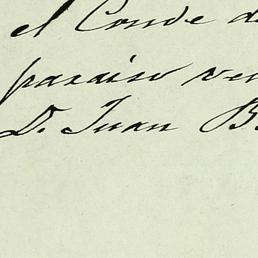 el Conde d
paraiso ve
D. Juan B